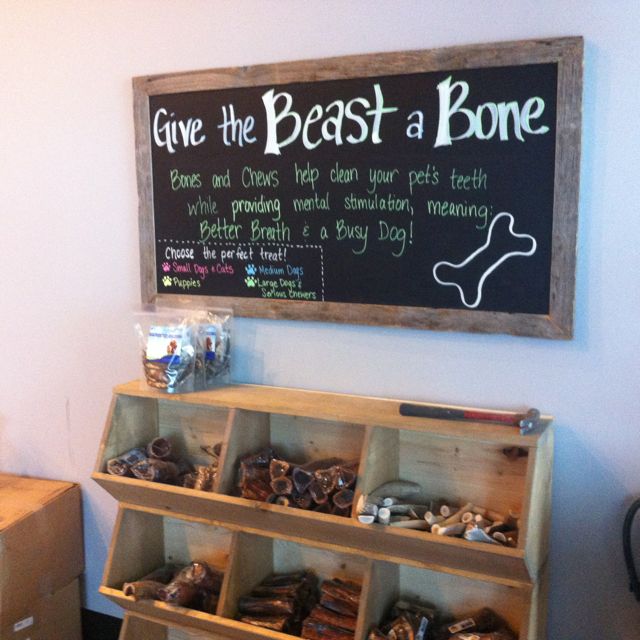 Give the Beast a Bone
Bones and Chews help clean your pet's teeth
while providing mental stimulation, meaning:
Better Breath & a Busy Dog!
Choose the perfect treat!
Small Dogs & Cats
Medium Dogs
Puppies
Large Dogs &
Serious Chewers